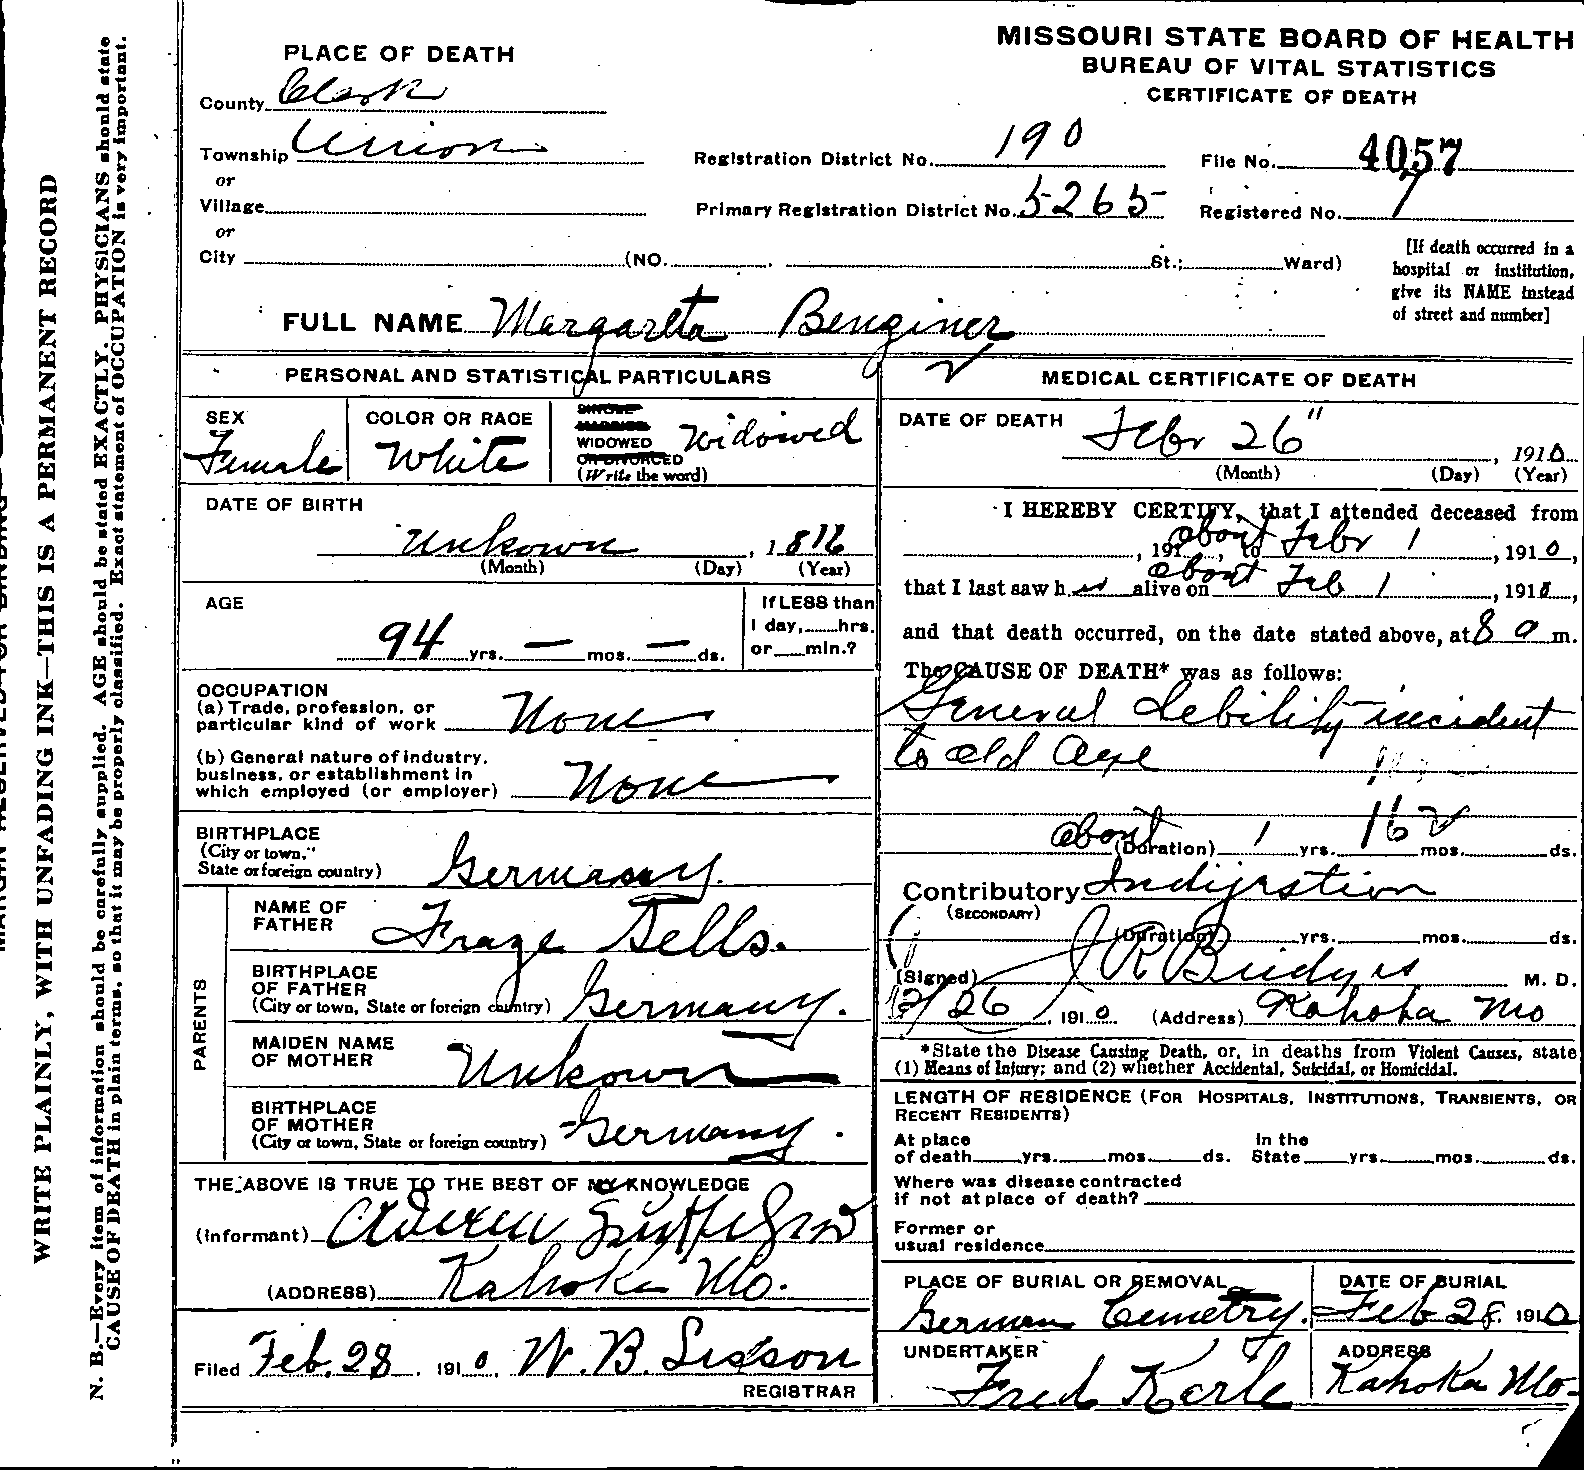 MISSOURI STATE BOARD OF HEALTH
BUREAU OF VITAL STATISTICS
CERTIFICATE OF DEATH
PLACE OF DEATH
County Clark
Township Union
or
Village
or
City (NO. St.; Ward)
Registration District No. 190
File No. 4057
Primary Registration District No. 5265
Registered No. 7
[If death occurred in a
hospital or institution,
give its NAME instead
of street and number]
FULL NAME Margareta Benginer
PERSONAL AND STATISTICAL PARTICULARS
SEX
Female
COLOR OR RACE
White
SINGLE
MARRIED
WIDOWED Widowed
OR DIVORCED
(Write the word)
DATE OF BIRTH
Unkown, 1816
(Month) (Day) (Year)
AGE
94 yrs. — mos. — ds.
If LESS than
1 day, hrs.
or min.?
OCCUPATION
(a) Trade, profession, or
particular kind of work None
(b) General nature of industry,
business, or establishment in
which employed (or employer) None
BIRTHPLACE
(City or town,
State or foreign country) Germany.
PARENTS
NAME OF
FATHER Fraze Sells.
BIRTHPLACE
OF FATHER
(City or town, State or foreign country) Germany.
MAIDEN NAME
OF MOTHER Unkown
BIRTHPLACE
OF MOTHER
(City or town, State or foreign country) Germany.
THE ABOVE IS TRUE TO THE BEST OF MY KNOWLEDGE
(Informant)
(ADDRESS) Kahoka Mo.
Filed Feb. 28, 1910, W. B. Sisson
REGISTRAR
MEDICAL CERTIFICATE OF DEATH
DATE OF DEATH Febr 26", 1910
(Month) (Day) (Year)
I HEREBY CERTIFY, that I attended deceased from
, 191 , to about Febr 1, 1910,
that I last saw her alive on about Feb 1, 1910,
and that death occurred, on the date stated above, at 8 a m.
The CAUSE OF DEATH* was as follows:
General debility incident
to old age
162
about (Duration) 1 yrs. mos. ds.
Contributory Indijestion
(SECONDARY)
(Duration) yrs. mos. ds.
(Signed) J R Bridges M. D.
2/26, 1910 (Address) Kahoka Mo
*State the Disease Causing Death, or, in deaths from Violent Causes, state
(1) Means of Injury; and (2) whether Accidental, Suicidal, or Homicidal.
LENGTH OF RESIDENCE (FOR HOSPITALS, INSTITUTIONS, TRANSIENTS, OR
RECENT RESIDENTS)
At place
of death yrs. mos. ds.
In the
State yrs. mos. ds.
Where was disease contracted
if not at place of death?
Former or
usual residence
PLACE OF BURIAL OR REMOVAL
German Cemetry.
DATE OF BURIAL
Feb 28, 1910
UNDERTAKER
Fred Karle
ADDRESS
Kahoka Mo.
WRITE PLAINLY, WITH UNFADING INK—THIS IS A PERMANENT RECORD
N. B.—Every item of information should be carefully supplied. AGE should be stated EXACTLY. PHYSICIANS should state
CAUSE OF DEATH in plain terms, so that it may be properly classified. Exact statement of OCCUPATION is very important.